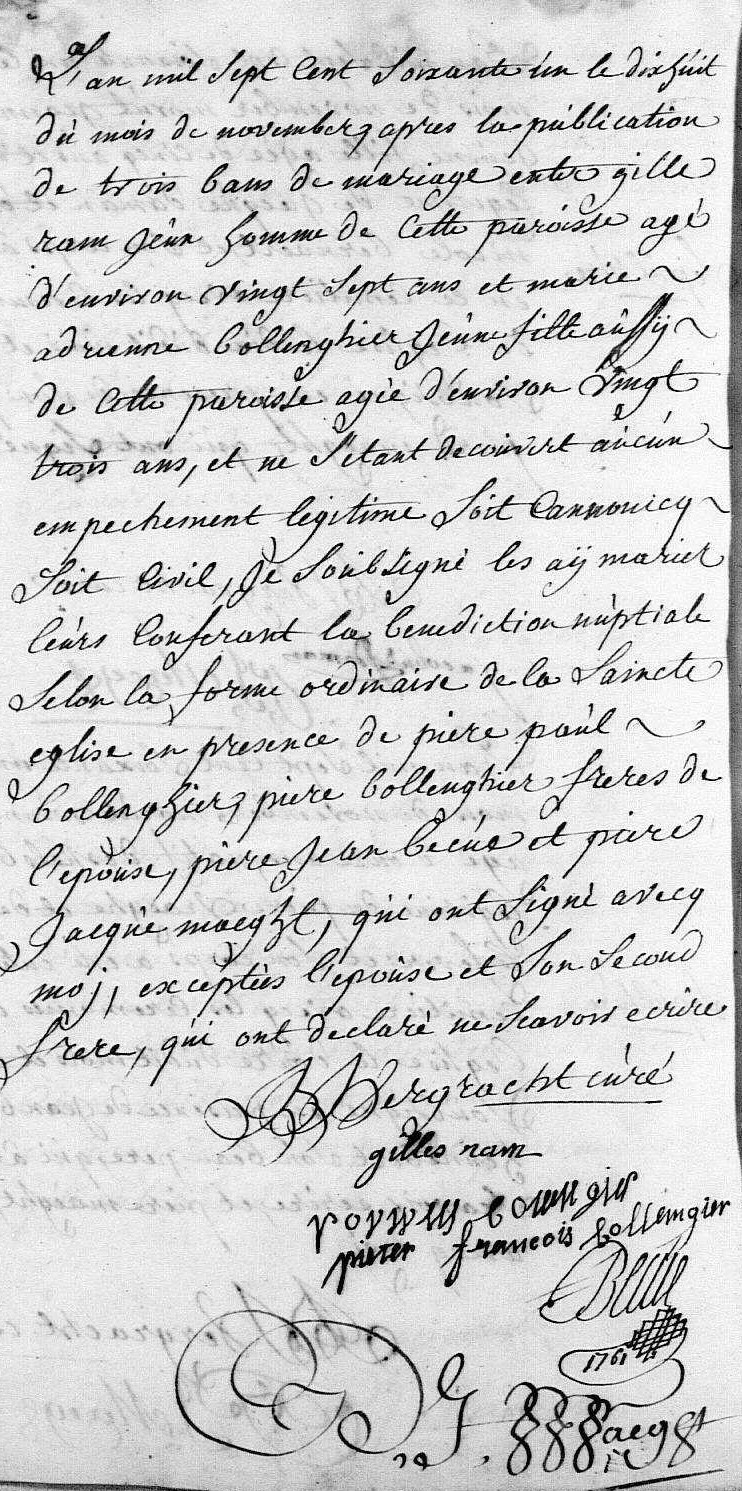 L'an mil sept cent soixante ún le dixhúit
dú mois de november, apres la públication
de trois bans de mariage entre gille
ram jeún homme de cette paroisse agé
d'environ vingt sept ans et marie
adrienne bollenghier jeúne fille aússÿ
de cette paroisse agée d'environ vingt
trois ans, et ne s'etant decouvert aúcún
empechement legitime soit cannonicq
soit civil, je soúbsigné les aÿ marier
leúrs conferant la benediction núptiale
selon la forme ordinaire de la saincte
eglise en presence de piere paúl
bollenghier, piere bollenghier freres de
l'epoúse, piere jean becúe et piere
jacqúe maeght, qúi ont signé avecq
moj, exceptées l'epoúse et son second
frere, qúi ont declaré ne scavoir ecrire
Vergracht cúré
gilles ram
pieter francois bollengier
Becue
1761
P J Maeght